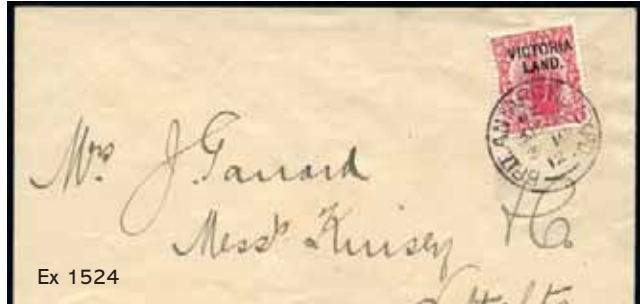 VICTORIA
LAND.
BRIT. ANTARCTIC
Mrs J. Garrard
Messrs Kinsey & Co.
Ex 1524